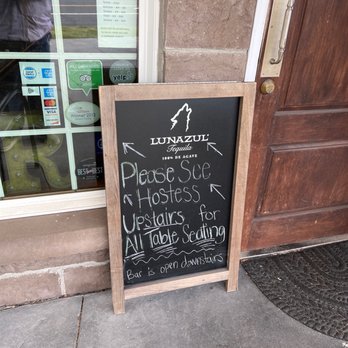 LUNAZUL
Tequila
100% DE AGAVE
Please See
Hostess
Upstairs for
All Table Seating
Bar is open downstairs